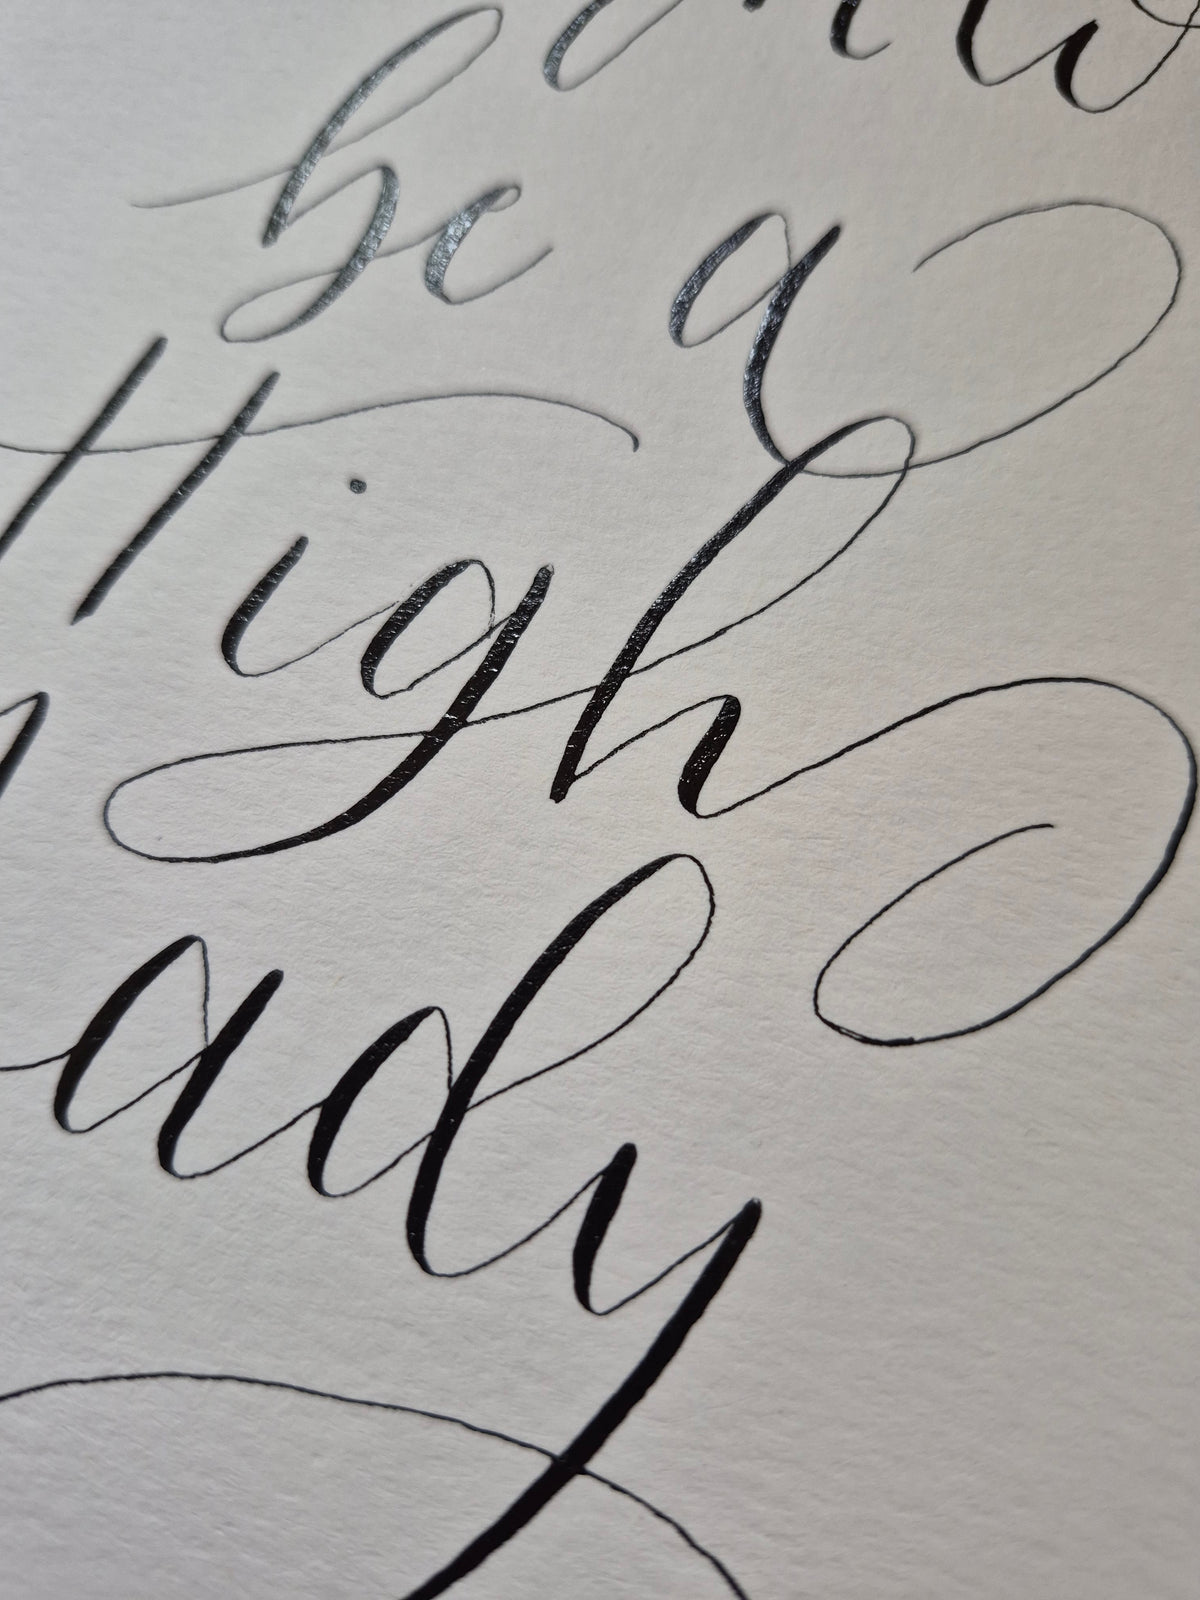 be a
High
Lady